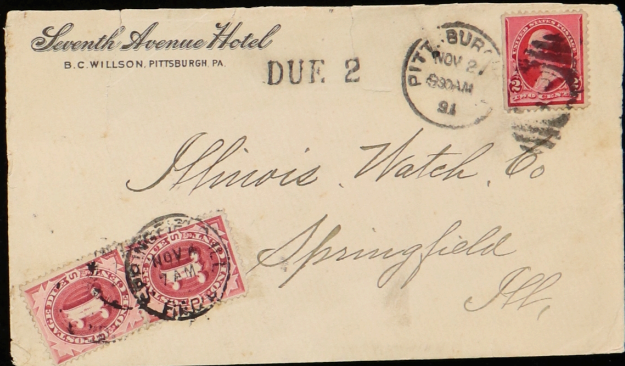 Seventh Avenue Hotel
B. C. WILLSON, PITTSBURGH, PA.
DUE 2
NOV 2
830AM
91
UNITED STATES POSTAGE
2
TWO CENTS
Illinois Watch Co
Springfield
Ill,
NOV 4
7 AM